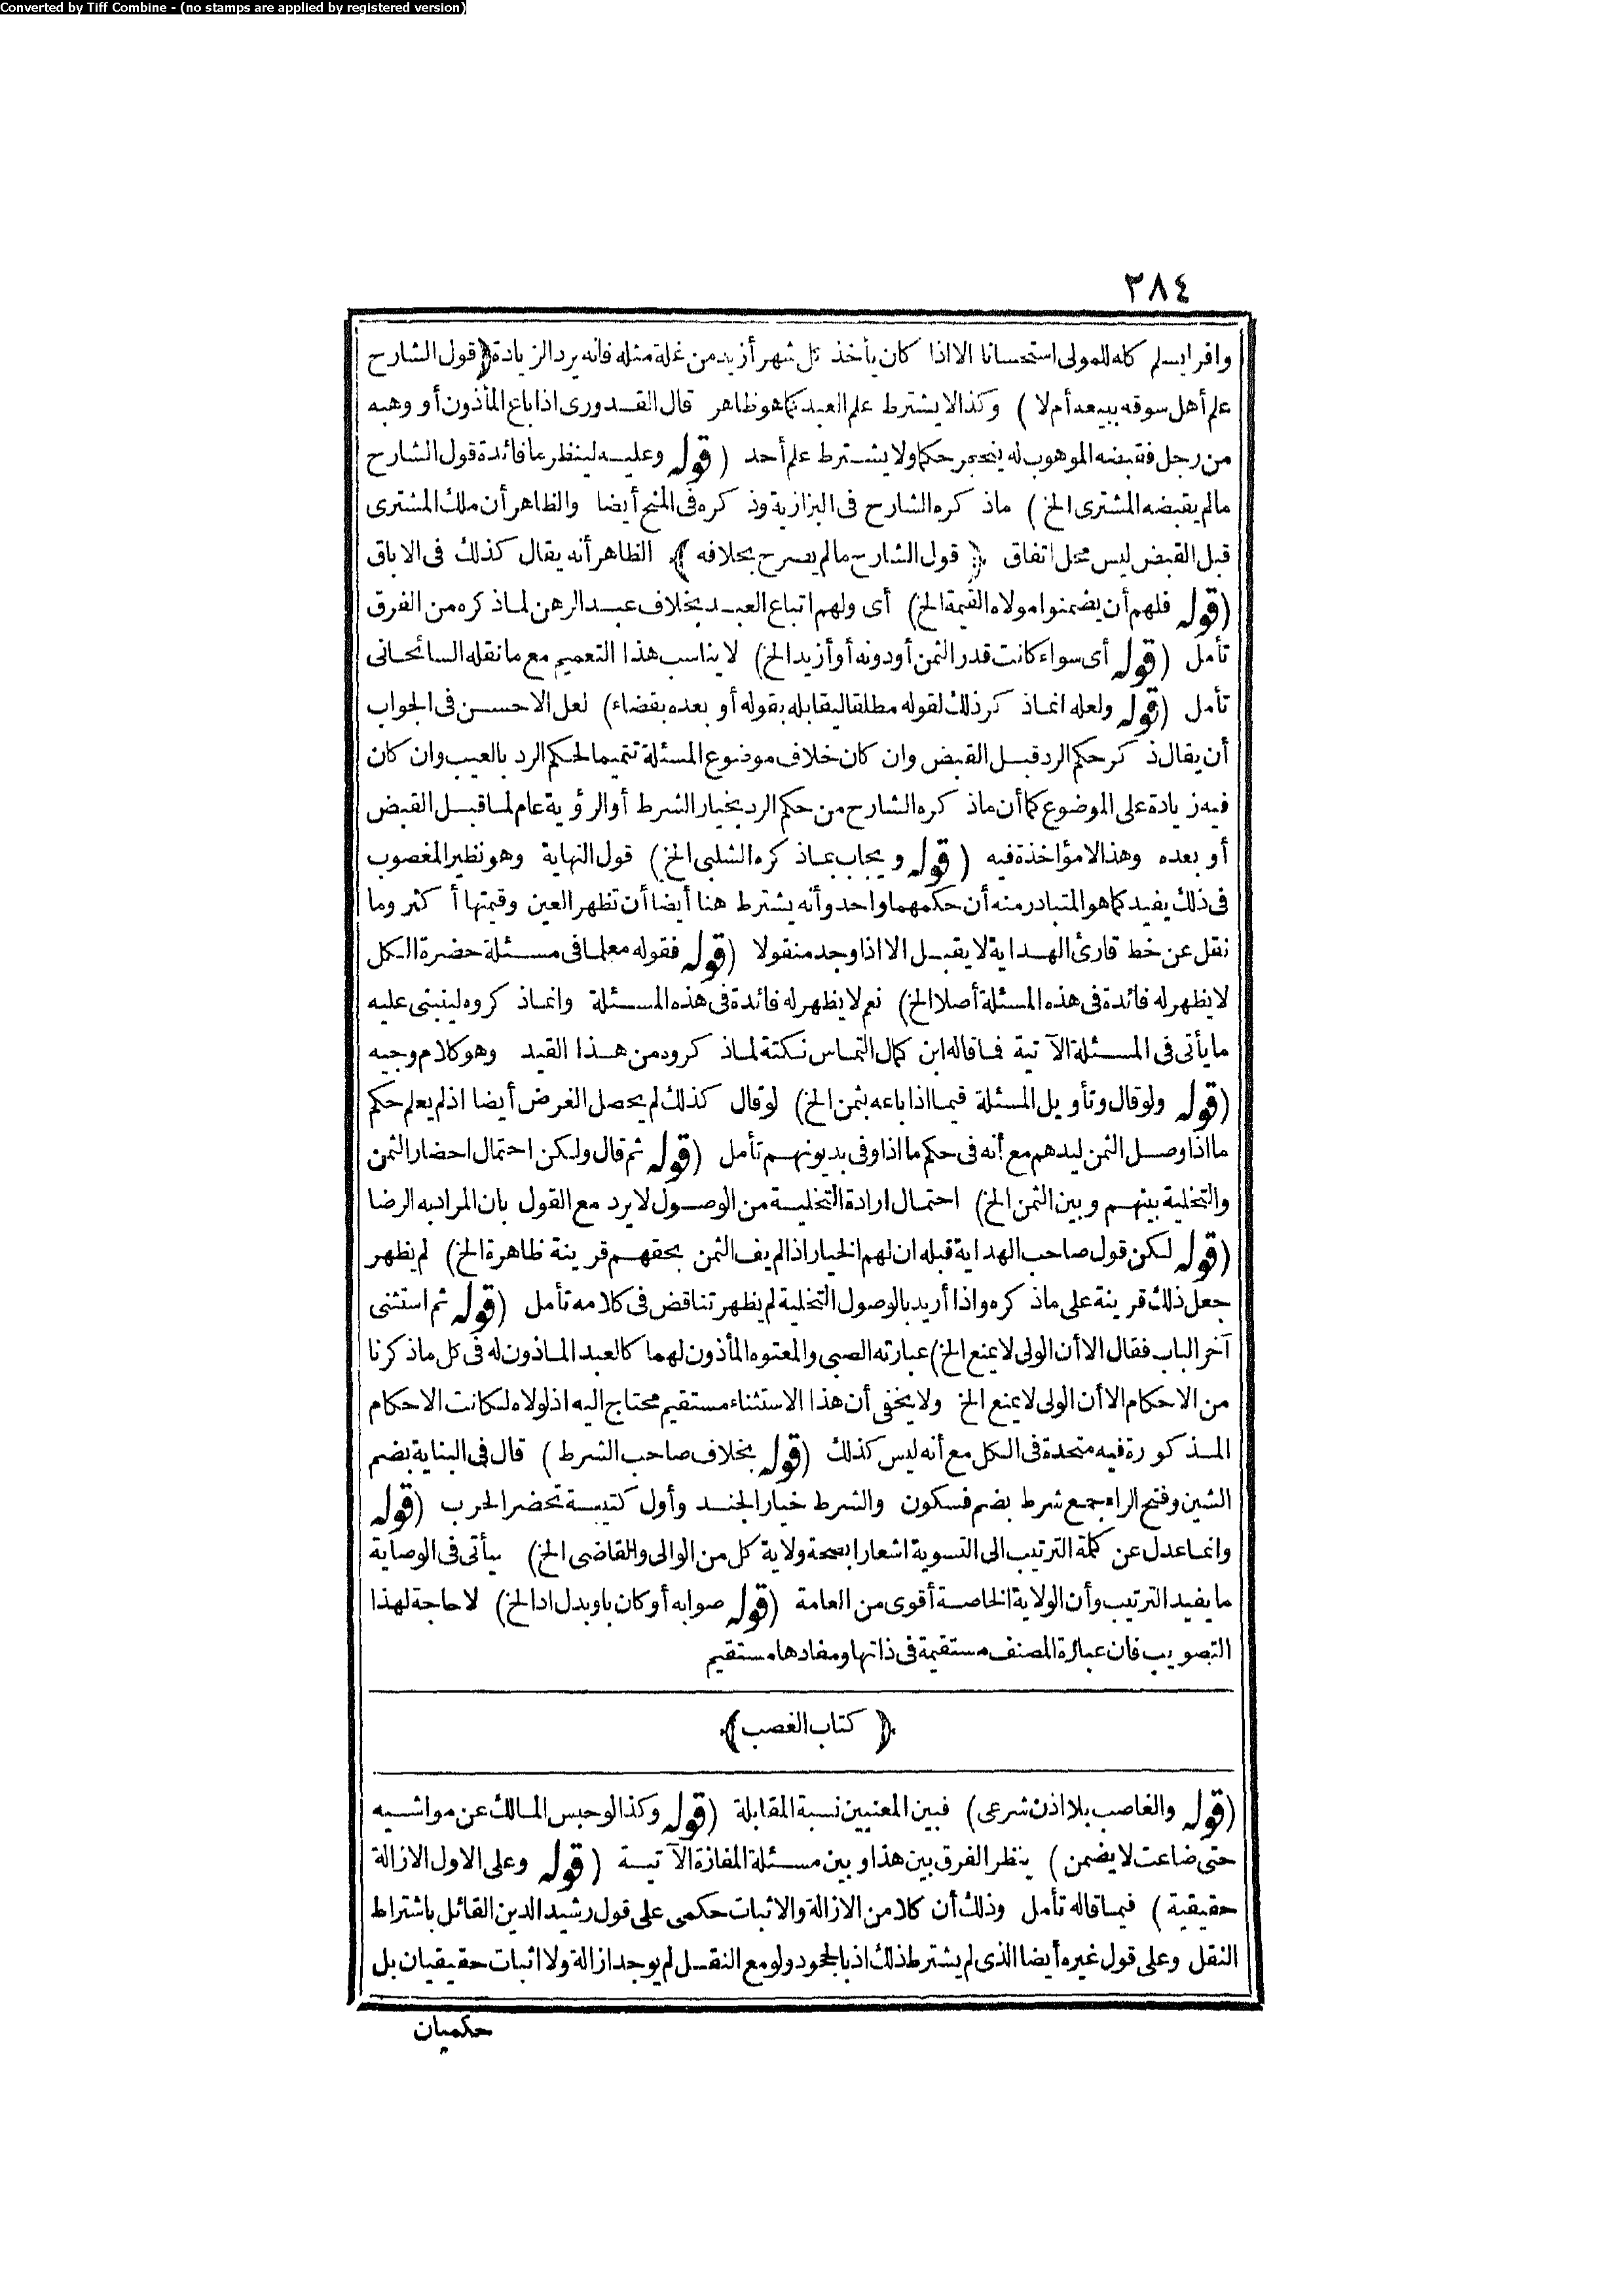 Converted by Tiff Combine - (no stamps are applied by registered version)
٣٨٤
وافرا يسلم كله للمولى استحسانا الا اذا كان يأخذ كل شهر أزيد من غلة مثله فانه يرد الزيادة (قول الشارح
علم أهل سوقه ببيعه أم لا) وكذا لا يشترط علم العبد كما هو ظاهر قال القدورى اذا باع المأذون أو وهبه
من رجل فقبضه الموهوب له ينحجر حكما ولا يشترط علم أحد (قوله وعليه لينظر ما فائدة قول الشارح
مالم يقبضه المشترى الخ) ماذكره الشارح فى البزازية وذكره فى المنح أيضا والظاهر أن ملك المشترى
قبل القبض ليس محل اتفاق (قول الشارح مالم يصرح بخلافه) الظاهر أنه يقال كذلك فى الاباق
(قوله فلهم أن يضمنوا مولاه القيمة الخ) أى ولهم اتباع العبد بخلاف عبد الرهن لماذكره من الفرق
تأمل (قوله أى سواء كانت قدر الثمن أو دونه أو أزيد الخ) لا يناسب هذا التعميم مع ما نقله السائحانى
تأمل (قوله ولعله انماذكر ذلك لقوله مطلقا ليقابله بقوله أو بعده بقضاء) لعل الاحسن فى الجواب
أن يقال ذكر حكم الرد قبل القبض وان كان خلاف موضوع المسئلة تتميما لحكم الرد بالعيب وان كان
فيه زيادة على الموضوع كما أن ماذكره الشارح من حكم الرد بخيار الشرط أو الرؤية عام لما قبل القبض
أو بعده وهذا لا مؤاخذة فيه (قوله ويجاب بماذكره الشلبى الخ) قول النهاية وهو نظير المغصوب
فى ذلك يفيد كما هو المتبادر منه أن حكمهما واحد وأنه يشترط هنا أيضا أن تظهر العين وقيمتها أكثر وما
نقل عن خط قارئ الهداية لا يقبل الا اذا وجد منقولا (قوله فقوله معلما فى مسئلة حضرة الكل
لا يظهر له فائدة فى هذه المسئلة أصلا الخ) نعم لا يظهر له فائدة فى هذه المسئلة وانماذكروه لينبنى عليه
ما يأتى فى المسئلة الآتية فما قاله ابن كمال التماس نكتة لماذكروه من هذا القيد وهو كلام وجيه
(قوله ولو قال وتأويل المسئلة فيما اذا باعه بثمن الخ) لو قال كذلك لم يحصل الغرض أيضا اذ لم يعلم حكم
ما اذا وصل الثمن ليدهم مع أنه فى حكم ما اذا وفى بديونهم تأمل (قوله ثم قال ولكن احتمال احضار الثمن
والتخلية بينهم وبين الثمن الخ) احتمال ارادة التخلية من الوصول لا يرد مع القول بان المراد به الرضا
(قوله لكن قول صاحب الهداية قبله ان لهم الخيار اذا لم يف الثمن بحقهم قرينة ظاهرة الخ) لم يظهر
جعل ذلك قرينة على ماذكره واذا أريد بالوصول التخلية لم يظهر تناقض فى كلامه تأمل (قوله ثم استثنى
آخر الباب فقال الا أن الولى لا يمنع الخ) عبارته الصبى والمعتوه المأذون لهما كالعبد المأذون له فى كل ماذكرنا
من الاحكام الا أن الولى لا يمنع الخ ولا يخفى أن هذا الاستثناء مستقيم محتاج اليه اذ لولاه لكانت الاحكام
المذكورة فيه متحدة فى الكل مع أنه ليس كذلك (قوله بخلاف صاحب الشرط) قال فى البناية بضم
الشين وفتح الراء جمع شرط بضم فسكون والشرط خيار الجند وأول كتيبة تحضر الحرب (قوله
وانما عدل عن كلمة الترتيب الى التسوية اشعارا بصحة ولاية كل من الوالى والقاضى الخ) سيأتى فى الوصاية
ما يفيد الترتيب وأن الولاية الخاصة أقوى من العامة (قوله صوابه أو كان باو بدل اذ الخ) لا حاجة لهذا
التصويب فان عبارة المصنف مستقيمة فى ذاتها ومفادها مستقيم
(كتاب الغصب)
(قوله والغاصب بلا اذن شرعى) فبين المعنيين نسبة المقابلة (قوله وكذا لو حبس المالك عن مواشيه
حتى ضاعت لا يضمن) ينظر الفرق بين هذا وبين مسئلة المفازة الآتية (قوله وعلى الاول الازالة
حقيقية) فيما قاله تأمل وذلك أن كلا من الازالة والاثبات حكمى على قول رشيد الدين القائل باشتراط
النقل وعلى قول غيره أيضا الذى لم يشترط ذلك اذ بالجحود ولو مع النقل لم يوجد ازالة ولا اثبات حقيقيان بل
حكميان